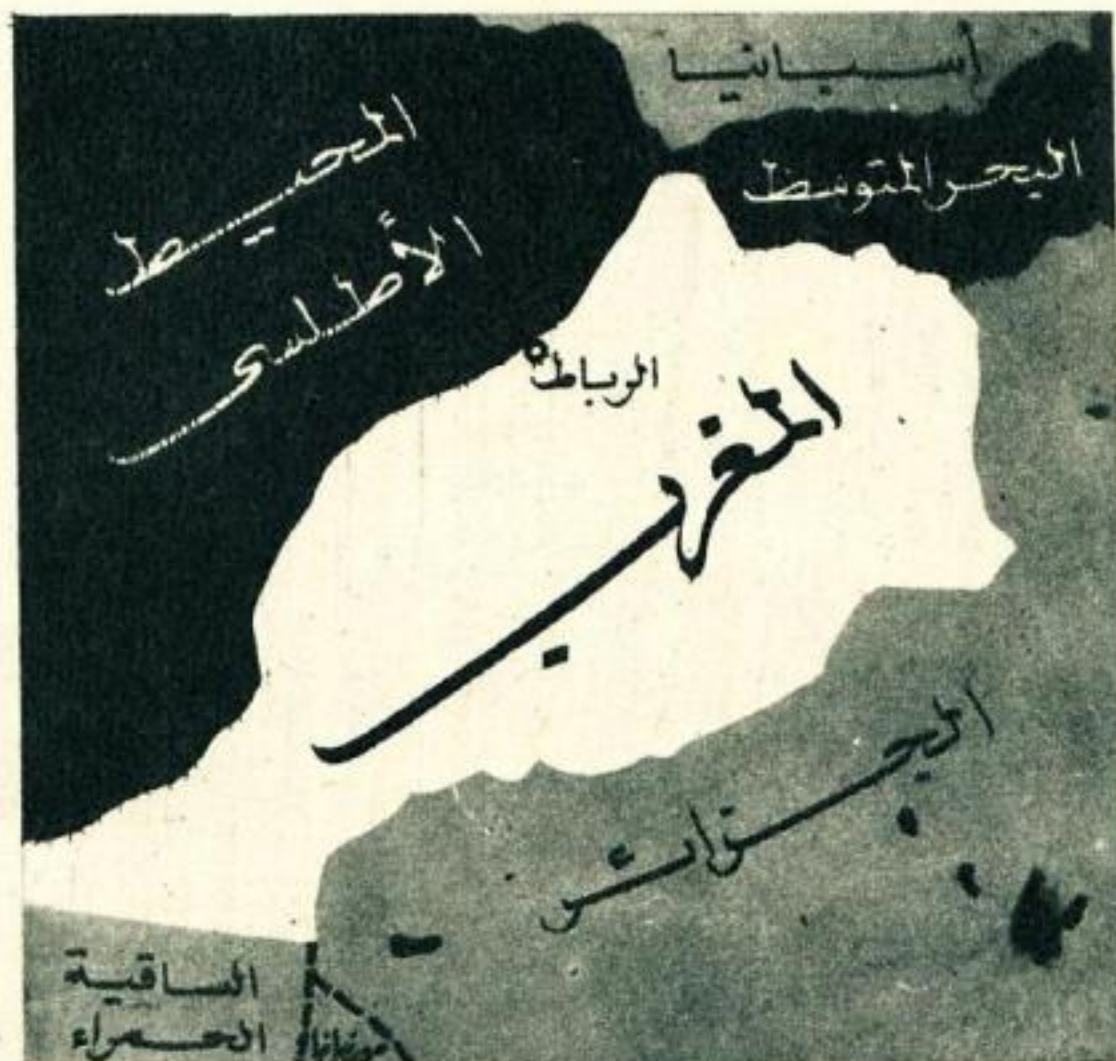 أسبانيا
المحيط
الأطلسى
البحر المتوسط
الرباط
المغرب
الجزائر
الساقية
الحمراء
موريتانيا